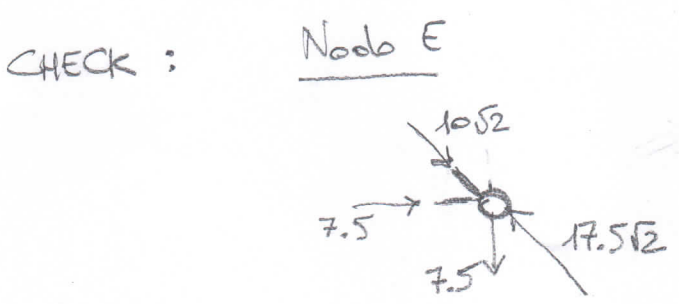 CHECK : Nodo E
10√2
7.5
17.5√2
7.5